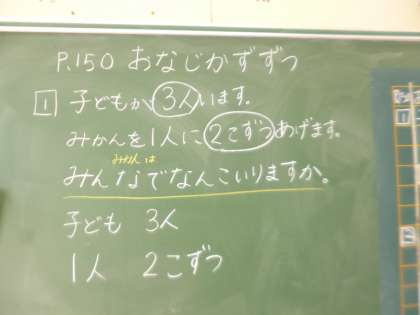 P.150 おなじかずずつ
1 子どもが3人います。
みかんを1人に2こずつあげます。
みかんは
みんなでなんこいりますか。
子ども 3人
1人 2こずつ